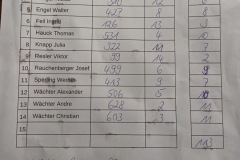 5 Engel Walter 427 8
6 Feil Ingrid 126 13 3
7 Hauck Thomas 531 4 10
8 Knapp Julia 322 11 7
9 Resler Viktor 99 14 2
10 Rauchenberger Josef 499 6 9
11 Sperling Werner 413
12 Wächter Alexander 506 5 10
13 Wächter Andre 628 2 11
14 Wächter Christian 603 3 11
15
113